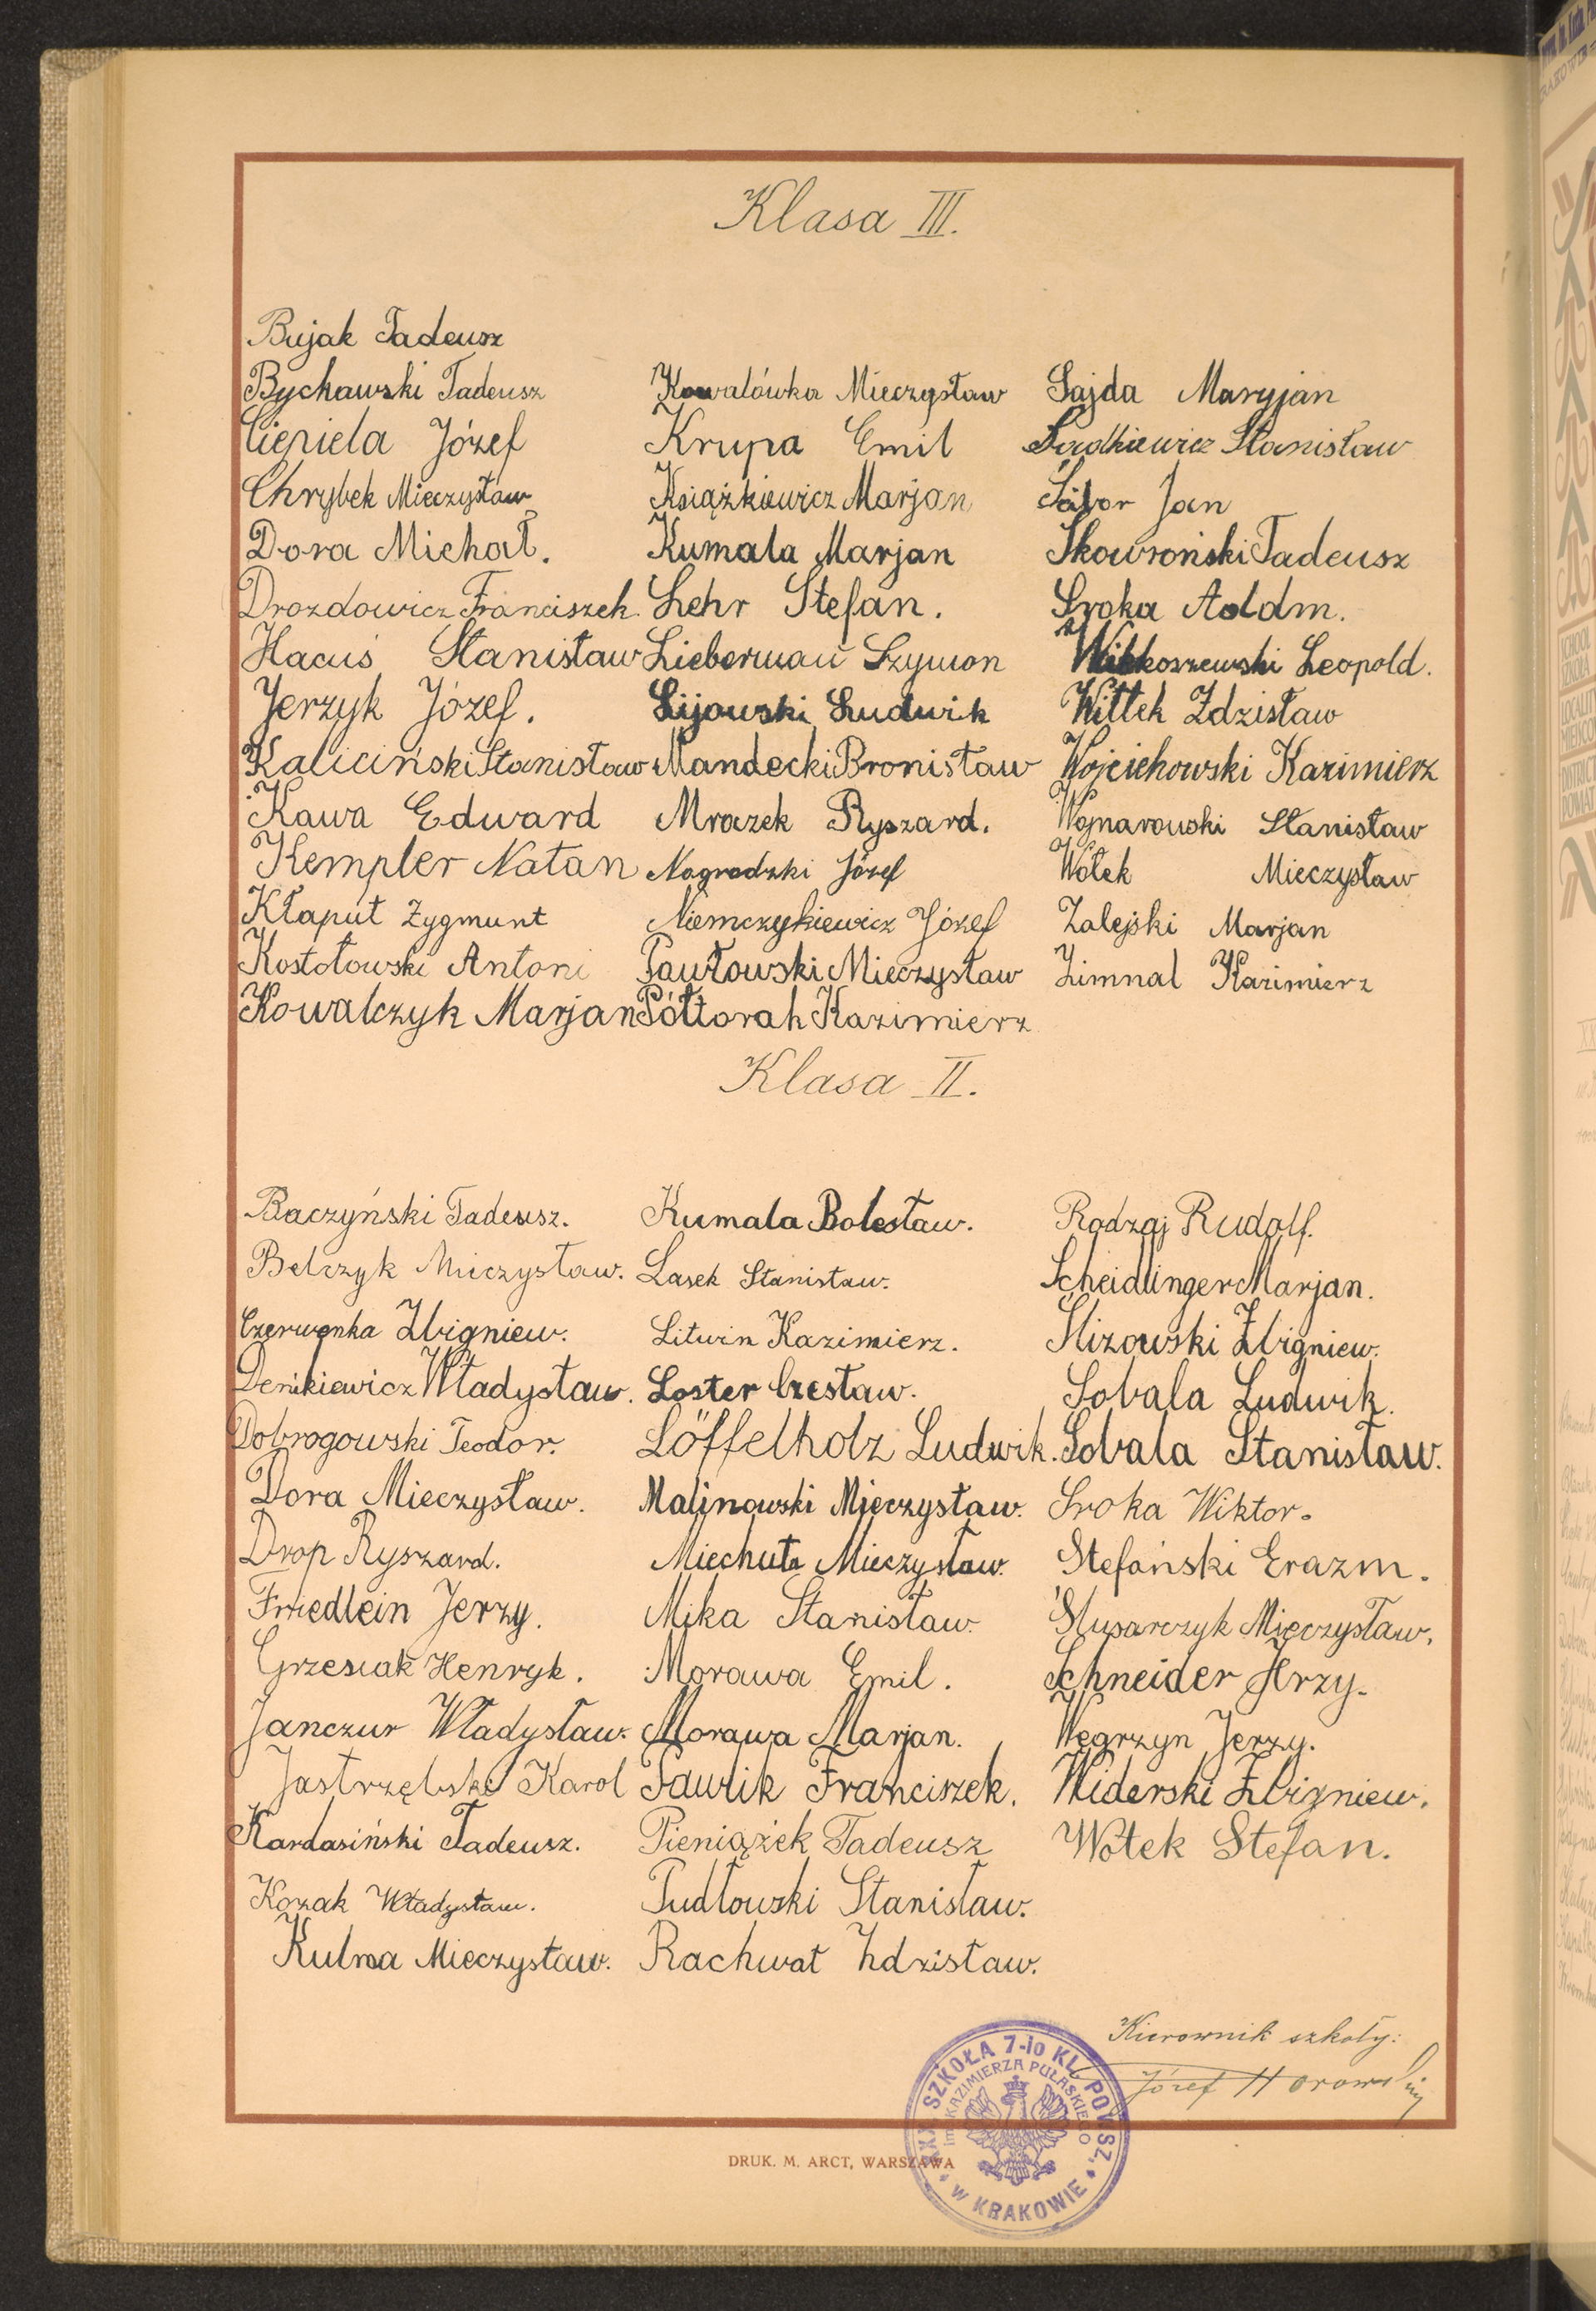 Klasa III.
Bujak Tadeusz
Bychawski Tadeusz
Ciepiela Józef
Chrybek Mieczysław
Dora Michał.
Drozdowicz Franciszek.
Hacuś Stanisław
Jerzyk Józef.
Kaliciński Stanisław
Kawa Edward
Kempler Natan
Kłaput Zygmunt
Kostołowski Antoni
Kowalczyk Marjan
Kowalówka Mieczysław
Krupa Emil
Książkiewicz Marjan
Kumala Marjan
Lehr Stefan.
Lieberman Szymon
Lijowski Ludwik
Mandecki Bronisław
Mrazek Ryszard.
Nagrodzki Józef
Niemczykiewicz Józef
Pawłowski Mieczysław
Półtorak Kazimierz
Sajda Maryjan
Stanisław
Jan
Skowroński Tadeusz
Sroka
Leopold.
Wittek Zdzisław
Wojciechowski Kazimierz
Wojnarowski Stanisław
Wołek Mieczysław
Zalejski Marjan
Zimnal Kazimierz
Klasa II.
Baczyński Tadeusz.
Belczyk Mieczysław.
Czerwonka Zbigniew.
Denikiewicz Władysław.
Dobrogowski Teodor.
Dora Mieczysław.
Drop Ryszard.
Friedlein Jerzy.
Grzesiak Henryk.
Janczur Władysław.
Jastrzębski Karol
Kardasiński Tadeusz.
Kozak Władysław.
Kulma Mieczysław.
Kumala Bolesław.
Lasek Stanisław.
Litwin Kazimierz.
Loster Czesław.
Löffelholz Ludwik.
Malinowski Mieczysław.
Miechuta Mieczysław.
Mika Stanisław.
Morawa Emil.
Morawa Marjan.
Pawlik Franciszek.
Pieniążek Tadeusz
Pudłowski Stanisław.
Rachwał Zdzisław.
Rodzaj Rudolf.
Scheidlinger Marjan.
Ślizowski Zbigniew.
Sobala Ludwik.
Sobala Stanisław.
Sroka Wiktor.
Stefański Erazm.
Ślusarczyk Mieczysław.
Schneider Jerzy.
Węgrzyn Jerzy.
Widerski Zbigniew.
Wołek Stefan.
Kierownik szkoły:
Józef
XXX. SZKOŁA 7-io KL. POWSZ.
im. KAZIMIERZA PUŁASKIEGO
W KRAKOWIE
DRUK. M. ARCT, WARSZAWA